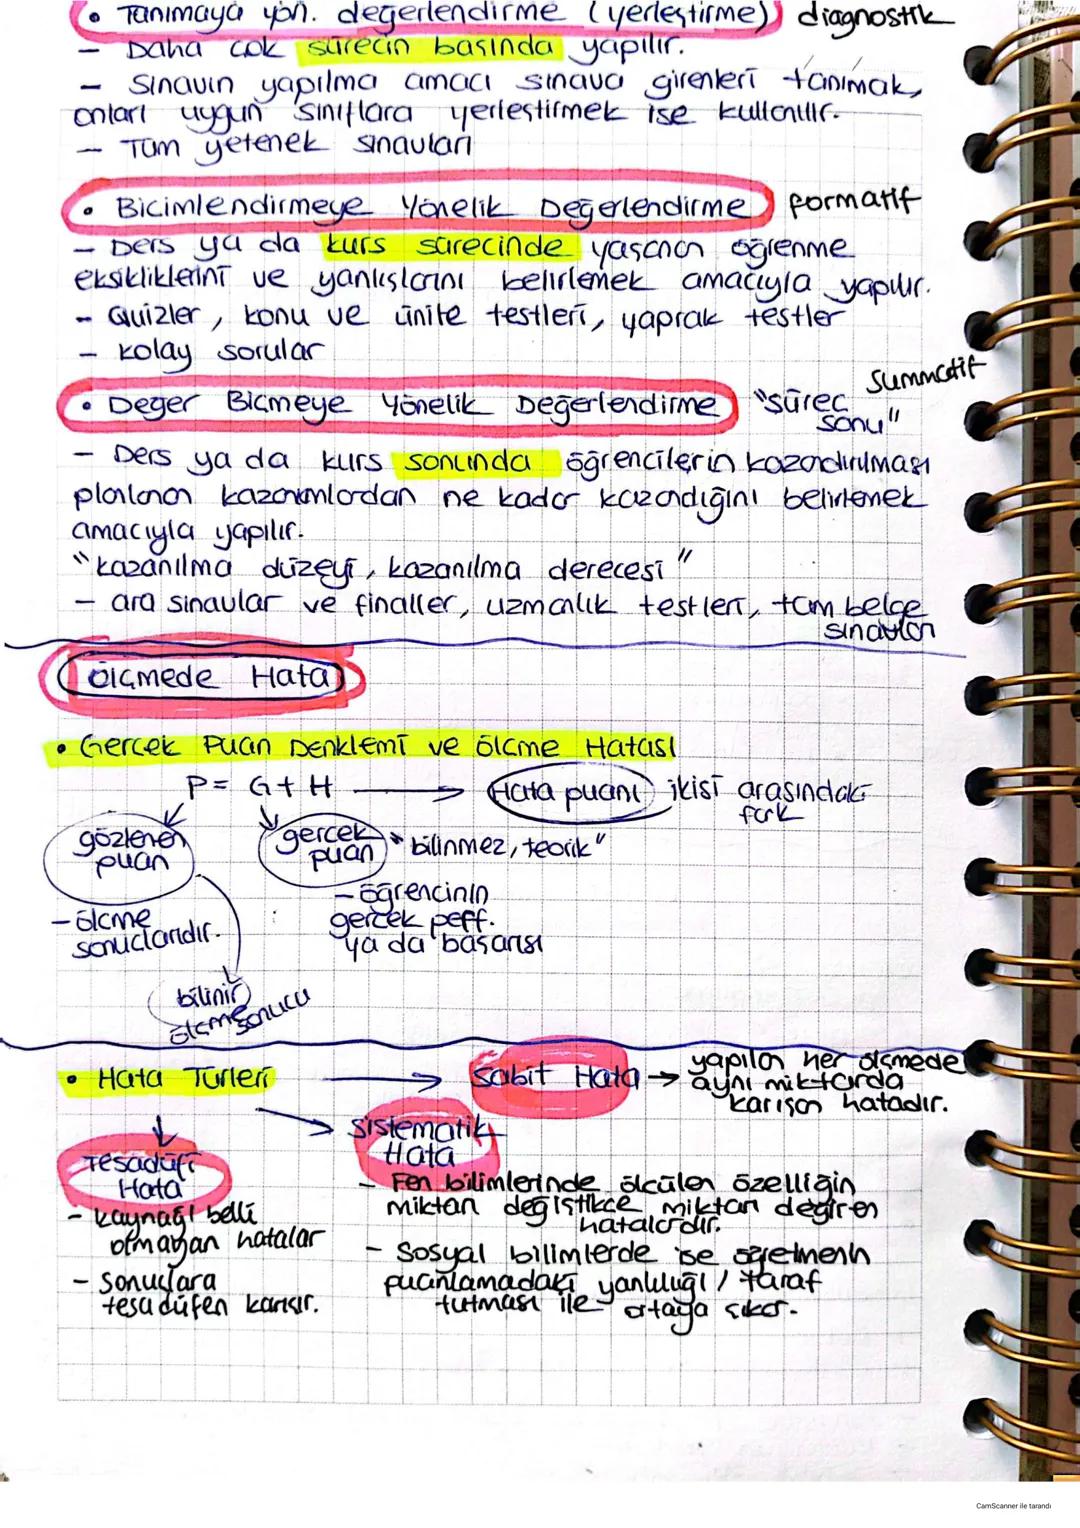 • Tanımaya yön. değerlendirme (yerleştirme) diagnostik
- Daha çok sürecin başında yapılır.
- Sınavın yapılma amacı sınava girenleri tanımak,
onları uygun sınıflara yerleştirmek ise kullanılır.
- Tüm yetenek sınavları
• Biçimlendirmeye Yönelik Değerlendirme formatif
- Ders ya da kurs sürecinde yaşanan öğrenme
eksikliklerini ve yanlışlarını belirlemek amacıyla yapılır.
- Quizler, konu ve ünite testleri, yaprak testler
- kolay sorular
• Değer Biçmeye Yönelik Değerlendirme "süreç sonu" Summatif
- Ders ya da kurs sonunda öğrencilerin kazandırılması
planlanan kazanımlardan ne kadar kazandığını belirlemek
amacıyla yapılır.
"kazanılma düzeyi, kazanılma derecesi"
- ara sınavlar ve finaller, uzmanlık testleri, tüm belge
sınavları
Ölçmede Hata
• Gerçek Puan Denklemi ve Ölçme Hatası
P = G + H → Hata puanı ikisi arasındaki
fark
gözlenen
puan
gerçek
puan "bilinmez, teorik"
- ölçme
sonuçlarıdır.
- öğrencinin
gerçek perf.
ya da başarısı
bilinir
ölçme sonucu
• Hata Türleri → Sabit Hata → yapılan her ölçmede
aynı miktarda
karışan hatadır.
Tesadüfi
Hata
- kaynağı belli
olmayan hatalar
- Sonuçlara
tesadüfen karışır.
Sistematik
Hata
- Fen bilimlerinde ölçülen özelliğin
miktarı değiştikçe miktarı değişen
hatalardır.
- Sosyal bilimlerde ise öğretmenin
puanlamadaki yanlılığı / taraf
tutması ile ortaya çıkar.
CamScanner ile tarandı